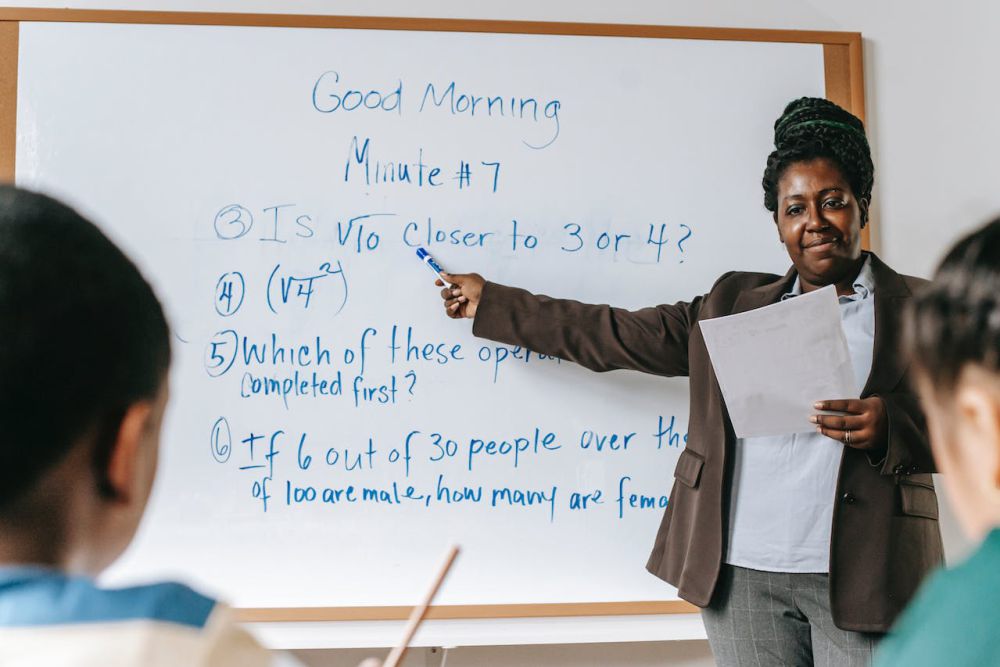 Good Morning
Minute # 7
③ Is √10 Closer to 3 or 4?
④ (√4²)
⑤ Which of these
completed first?
⑥ If 6 out of 30 people over the
of 100 are male, how many are